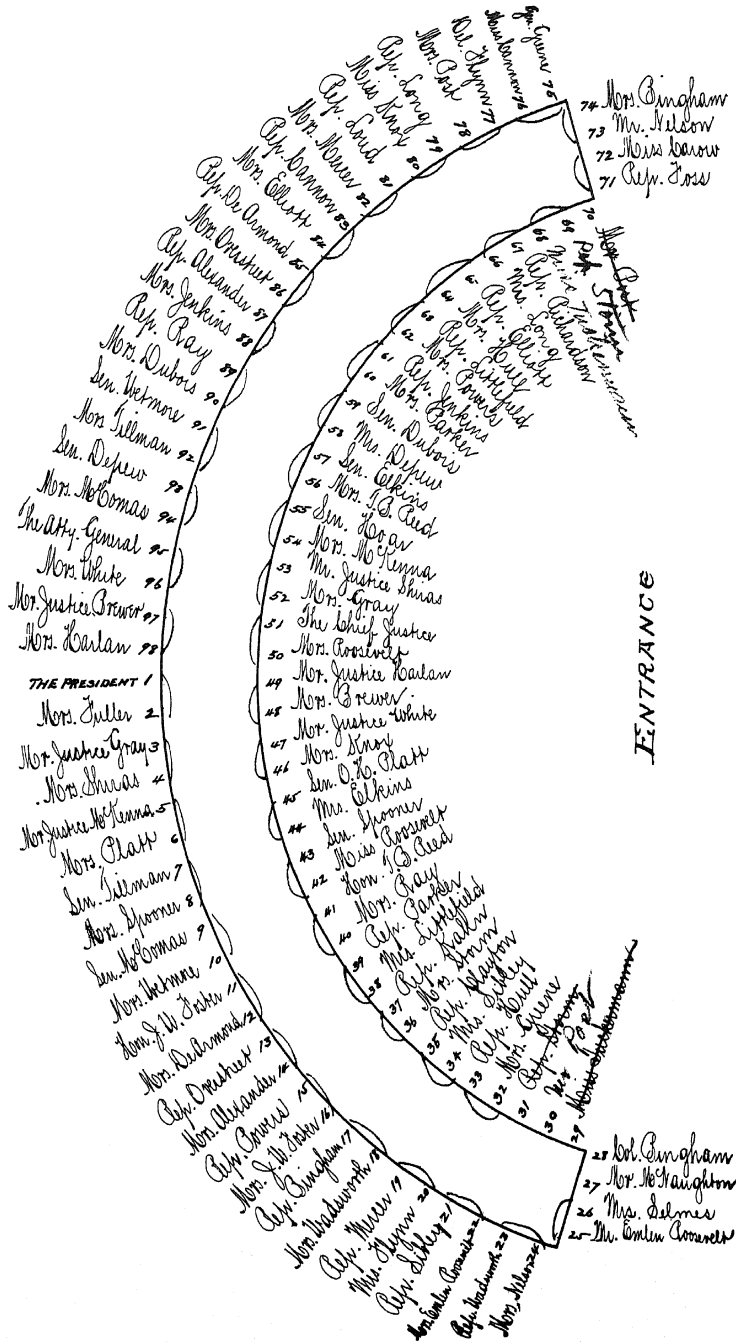 THE PRESIDENT 1
Mrs. Fuller 2
Mr. Justice Gray 3
Mrs. Shiras 4
Mr. Justice McKenna 5
Mrs. Platt 6
Sen. Tillman 7
Mrs. Spooner 8
Sen. McComas 9
Mrs. Wetmore 10
Hon. J. W. Foster 11
Mrs. De Armond 12
Rep. Overstreet 13
Mrs. Alexander 14
Rep. Powers 15
Mrs. J. W. Foster 16
Rep. Bingham 17
Mrs. Wadsworth 18
Rep. Mercer 19
Mrs. Flynn 20
Rep. Sibley 21
Mrs. Emlen Roosevelt 22
Rep. Wadsworth 23
Mrs. Nelson 24
25 Mr. Emlen Roosevelt
26 Mrs. Selmes
27 Mr. McNaughton
28 Col. Bingham
29
30 Mr. Post
31 Rep. Storm
32 Mrs. Greene
33 Rep. Hull
34 Mrs. Sibley
35 Rep. Clayton
36 Mrs. Storm
37 Rep. Kahn
38 Mrs. Littlefield
39 Rep. Parker
40 Mrs. Ray
41 Hon. T. B. Reed
42 Miss Roosevelt
43 Sen. Spooner
44 Mrs. Elkins
45 Sen. O. H. Platt
46 Mrs. Knox
47 Mr. Justice White
48 Mrs. Brewer
49 Mr. Justice Harlan
50 Mrs. Roosevelt
51 The Chief Justice
52 Mrs. Gray
53 Mr. Justice Shiras
54 Mrs. McKenna
55 Sen. Hoar
56 Mrs. T. B. Reed
57 Sen. Elkins
58 Mrs. Depew
59 Sen. Dubois
60 Mrs. Parker
61 Rep. Jenkins
62 Mrs. Powers
63 Rep. Littlefield
64 Mrs. Hull
65 Rep. Elliott
66 Mrs. Long
67 Rep. Richardson
68
69 Rep. Storm
70 Mrs. Post
71 Rep. Foss
72 Miss Carow
73 Mr. Nelson
74 Mrs. Bingham
Greene 75
Miss Cannon 76
Del. Flynn 77
Mrs. Post 78
Rep. Long 79
Miss Knox 80
Rep. Loud 81
Mrs. Mercer 82
Rep. Cannon 83
Mrs. Elliott 84
Rep. De Armond 85
Mrs. Overstreet 86
Rep. Alexander 87
Mrs. Jenkins 88
Rep. Ray 89
Mrs. Dubois 90
Sen. Wetmore 91
Mrs Tillman 92
Sen. Depew 93
Mrs. McComas 94
The Atty. General 95
Mrs. White 96
Mr. Justice Brewer 97
Mrs. Harlan 98
ENTRANCE